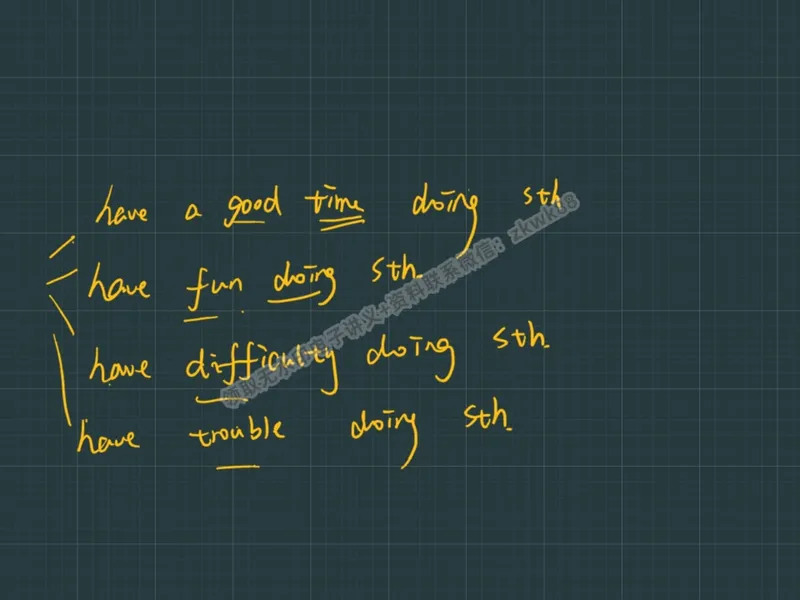 have a good time doing sth
have fun doing sth.
have difficulty doing sth.
have trouble doing sth.
领取无水印电子讲义+资料联系微信：zkwk68